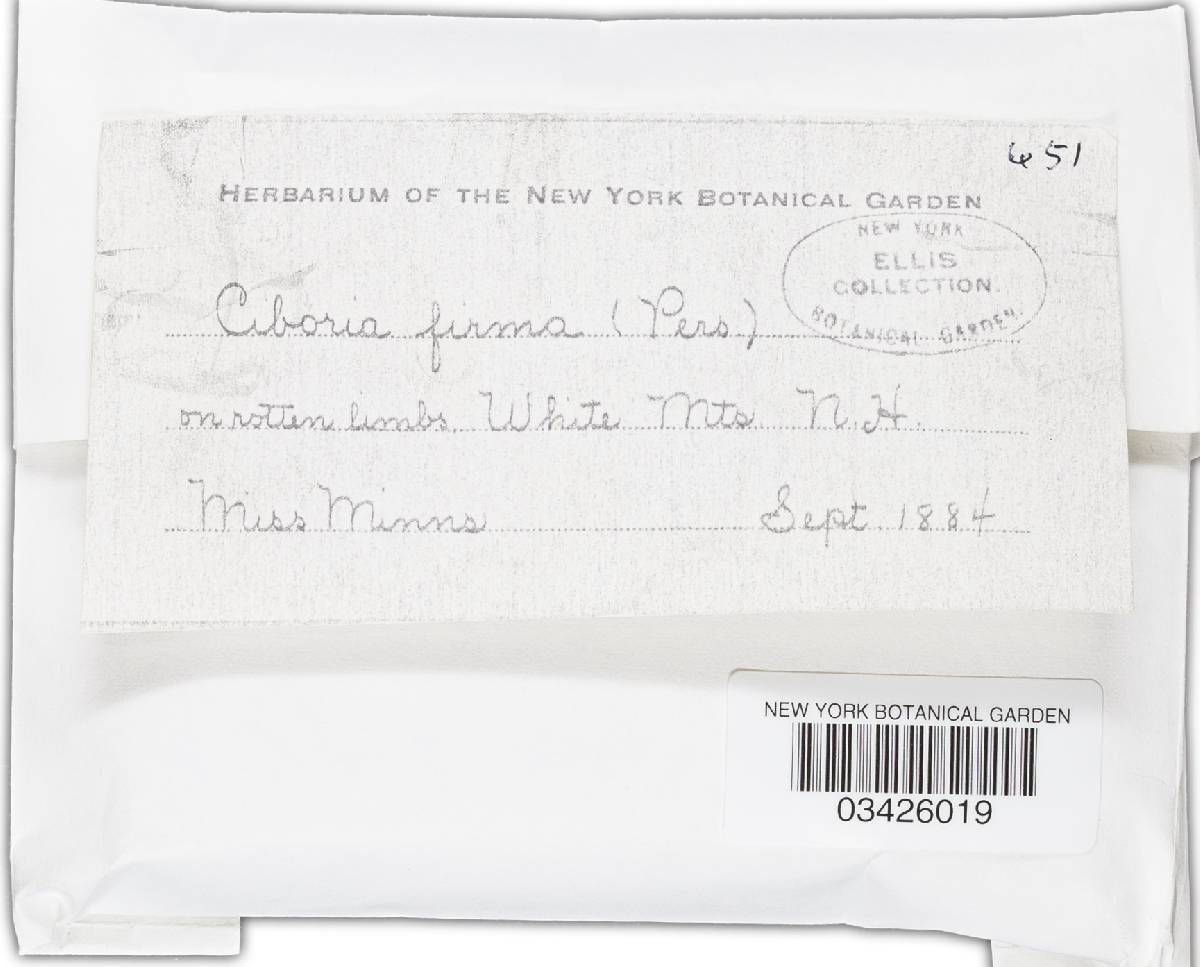 651
HERBARIUM OF THE NEW YORK BOTANICAL GARDEN
NEW YORK
ELLIS
COLLECTION.
BOTANICAL GARDEN.
Ciboria firma (Pers)
on rotten limbs, White Mts. N.H.
Miss Minns Sept. 1884
NEW YORK BOTANICAL GARDEN
03426019